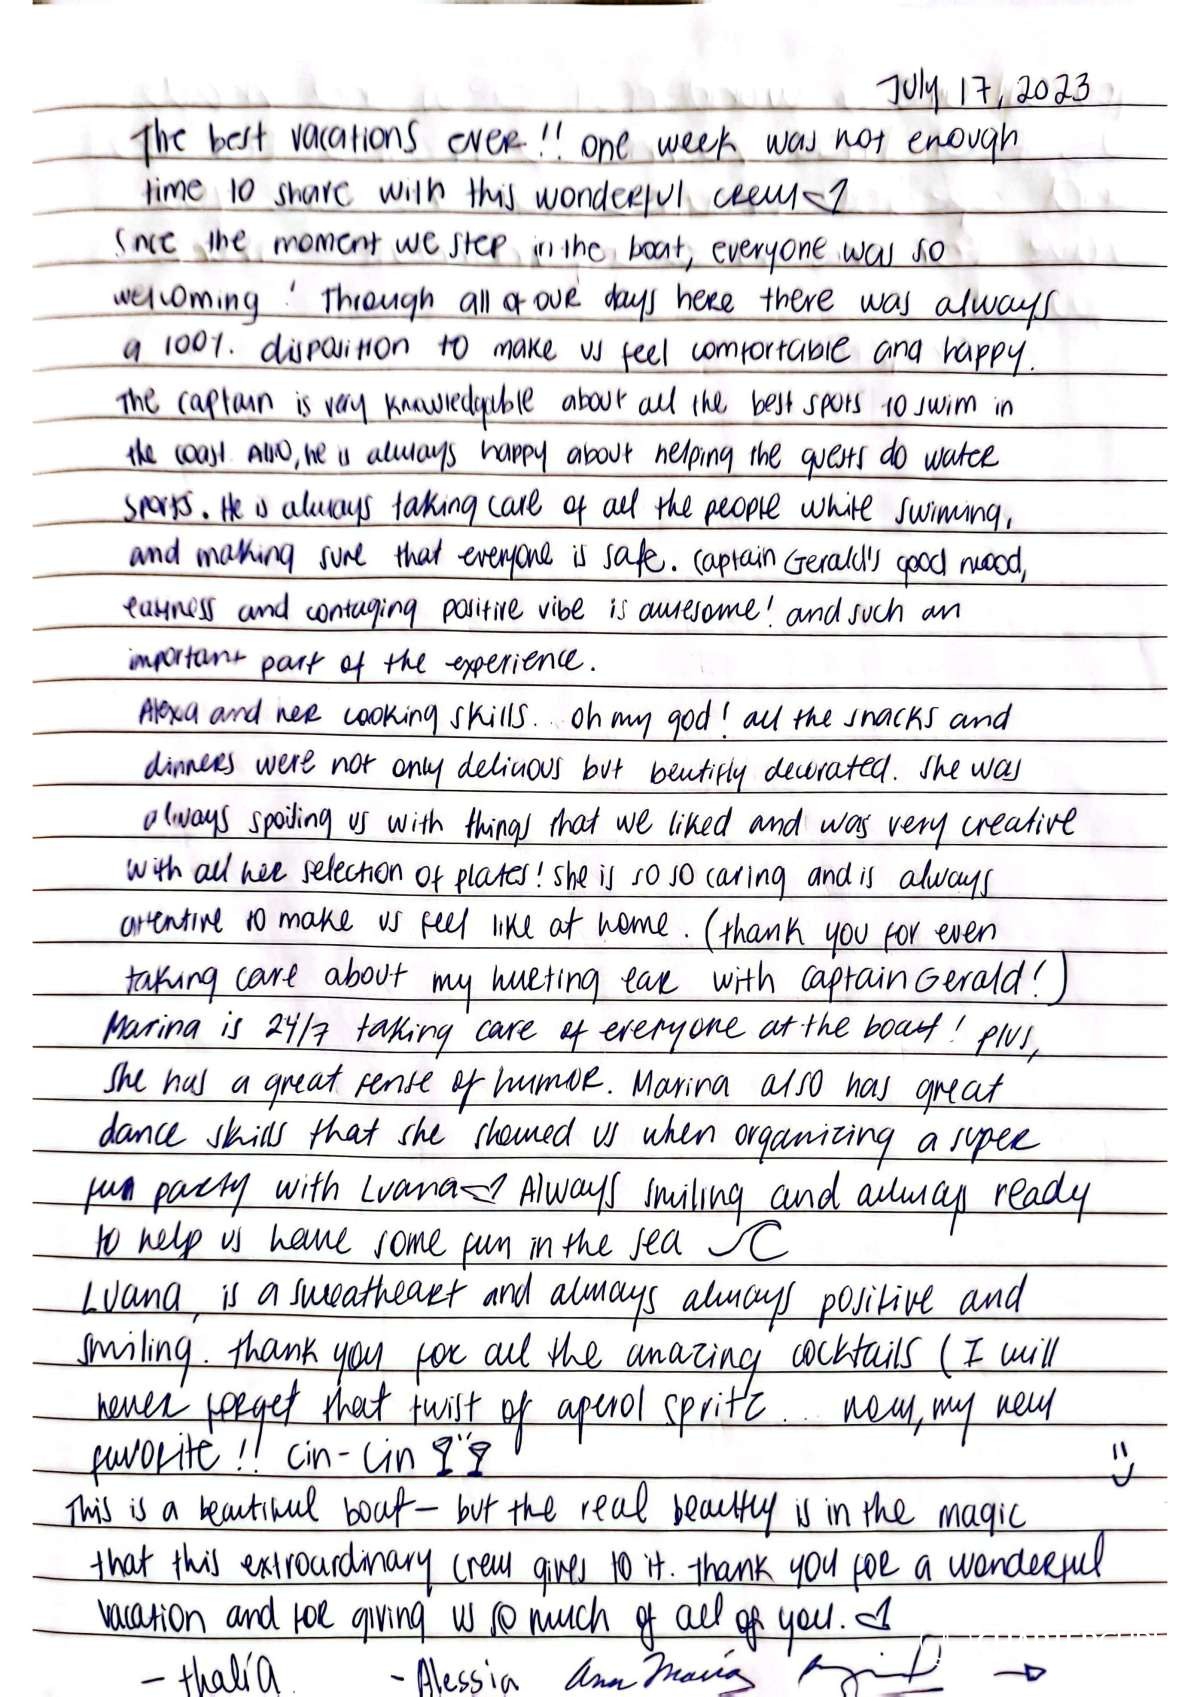 July 17, 2023
The best vacations ever!! one week was not enough
time to share with this wonderful crew <3
Snce the moment we step in the boat, everyone was so
welcoming! Through all of our days here there was always
a 100% disposition to make us feel comfortable and happy.
The captain is very knowledgable about all the best spots to swim in
the coast. Also, he is always happy about helping the guests do water
sports. He is always taking care of all the people while swiming,
and making sure that everyone is safe. Captain Gerald's good mood,
easyness and contaging positive vibe is awesome! and such an
important part of the experience.
Alexa and her cooking skills... oh my god! all the snacks and
dinners were not only delicious but beutifly decorated. She was
always spoiling us with things that we liked and was very creative
with all her selection of plates! she is so so caring and is always
attentive to make us feel like at home. (thank you for even
taking care about my hurting ear with captain Gerald!)
Marina is 24/7 taking care of everyone at the boat! plus,
she has a great sense of humor. Marina also has great
dance skills that she showed us when organizing a super
fun party with Luana <3 Always smiling and always ready
to help us have some fun in the sea
Luana, is a sweatheart and always always positive and
smiling. thank you for all the amazing cocktails (I will
never forget that twist of aperol spritz... now, my new
favorite!! Cin-Cin
This is a beautiful boat - but the real beautty is in the magic
that this extraordinary crew gives to it. thank you for a wonderful
vacation and for giving us so much of all of you. <3
- thalía - Alessia Ana María